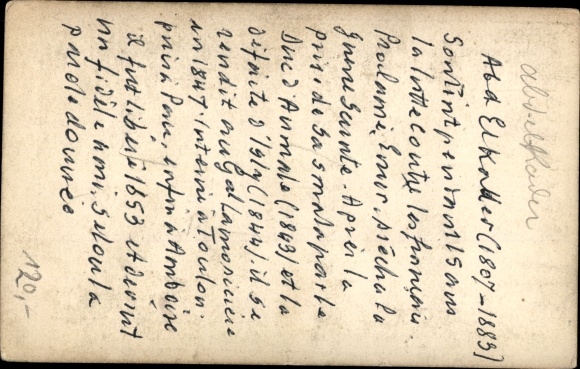 abd-elKader
Abd El Kader (1807-1883)
Soutint pendant 15 ans
la lutte contre les français.
Proclamé Emir, prêcha la
guerre Sainte. Après la
prise de sa smala par le
Duc d'Aumale (1843) et la
défaite d'Isly (1844) il se
rendit au Gal Lamoricière
en 1847. Interné à Toulon
puis à Pau, enfin à Amboise
il fut libéré 1853 et devint
un fidèle ami, selon la
parole donnée
120,-